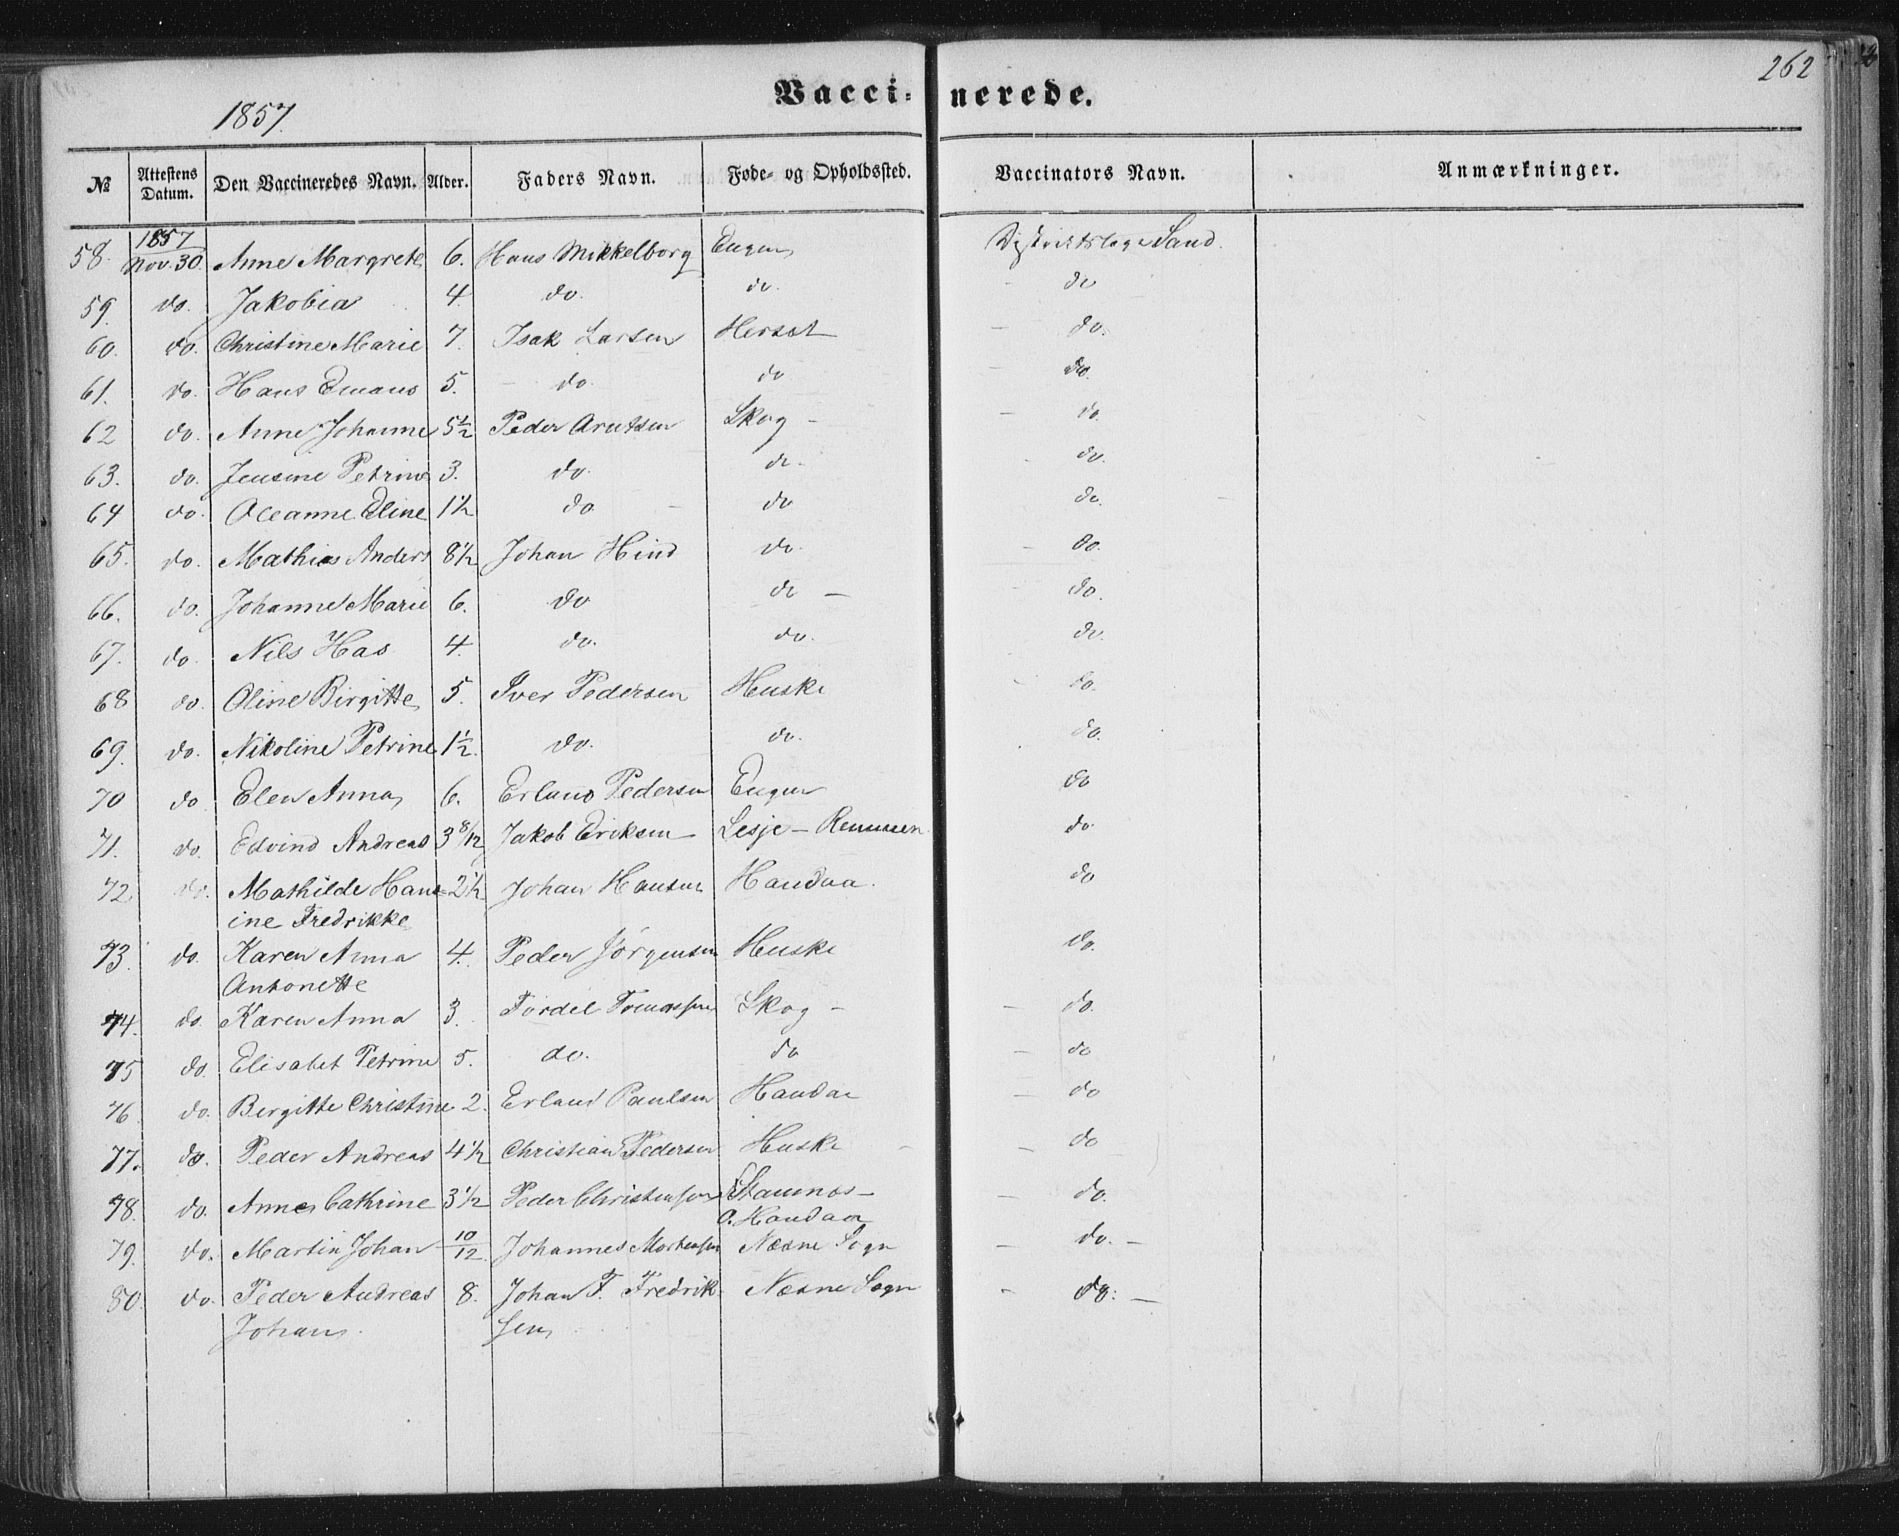 262
1857.
Vacci- nerede.
№ Attestens Datum. Den Vaccineredes Navn. Alder. Faders Navn. Føde- og Opholdssted. Vaccinators Navn. Anmærkninger.
58. 1857 Nov. 30. Anne Margrete 6. Hans Mikkelborg Engen Sand.
59. do. Jakobia 4. do. do. do
60. do. Christine Marie 7. Isak Larsen Herset – do.
61. do. Hans Emans 5. – do. do – do.
62 do. Anne Johanne 5½ Peder Arntsen Skog – – do.
63. do. Jensine Petrine 3. do. do. do.
64 do. Oleanne Eline 1½ do – do do.
65. do. Mathias Anders 8½ Johan Hind do. – do.
66. do. Johanne Marie 6. do do – do.
67. do. Nils Has 4. do. do. do.
68 do. Oline Birgitte 5. Iver Pedersen Huske do.
69. do. Nikoline Petrine 1½. do. do. do.
70 do Elen Anna 6. Erland Pedersen Engen do
71. do. Edvind Andreas 3 8/12 Jakob Eriksen Lesje – do.
72 do. Mathilde Hans- 2½ Johan Hansen Handaa. do
ine Fredrikke
73. do. Karen Anna 4. Peder Jörgensen Huske do.
Antonette
74. do. Karen Anna 3. Tordel Tomassen Skog – – do.
75 do. Elisabet Petrine 5. do. do – do
76 do. Birgitte Christine 2. Erland Paulsen Handaa – do
77. do. Peder Andreas 4½ Christian Pedersen Huske – – do
78. do. Anne Cathrine 3½ Peder Christensen – – do.
o. Handaa
79. do. Martin Johan 10/12 Johannes Mortensen Næsne Sogn – do. –
80. do. Peder Andreas 8. Johan F. Fredrik- Næsne Sogn – do. –
Johan sen